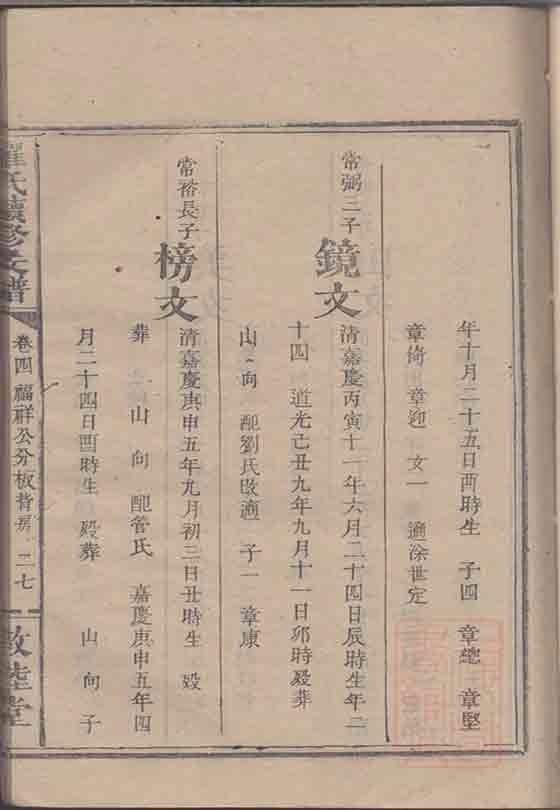 年十月二十五日酉時生　子四　章總　章堅
章倚　章迎　女一　適涂世定
常弼三子
鏡文
清嘉慶丙寅十一年六月二十四日辰時生年二
十四　道光己丑九年九月十一日卯時殁葬
山　向　配劉氏改適　子一　章康
常裕長子
榜文
清嘉慶庚申五年九月初三日丑時生　殁
葬　山　向　配管氏　嘉慶庚申五年四
月二十四日酉時生　殁葬　山　向　子
氏續修支譜
卷四　福祥公分板背房　二七
敦睦堂